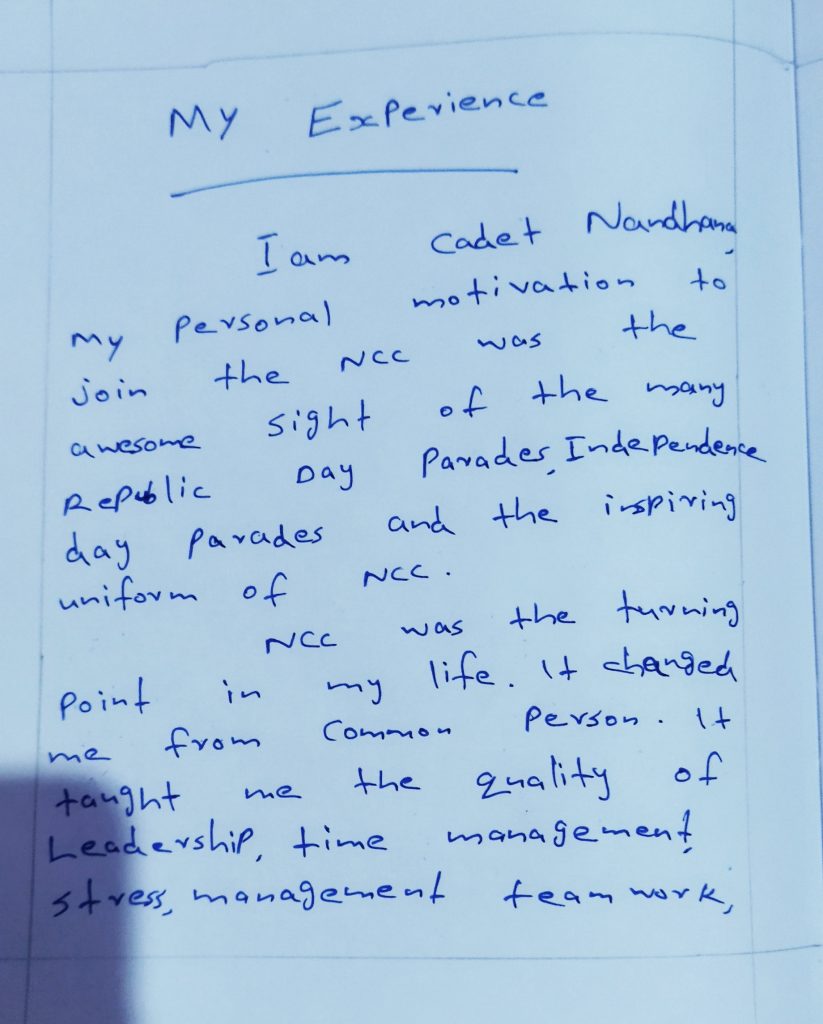 My Experience
I am Cadet Nandhana,
My Personal motivation to
join the NCC was the
awesome sight of the many
Republic Day Parades, Independence
day Parades and the inspiring
uniform of NCC.
NCC was the turning
Point in my life. It changed
me from Common Person. It
taught me the quality of
Leadership, time management,
stress, management team work,